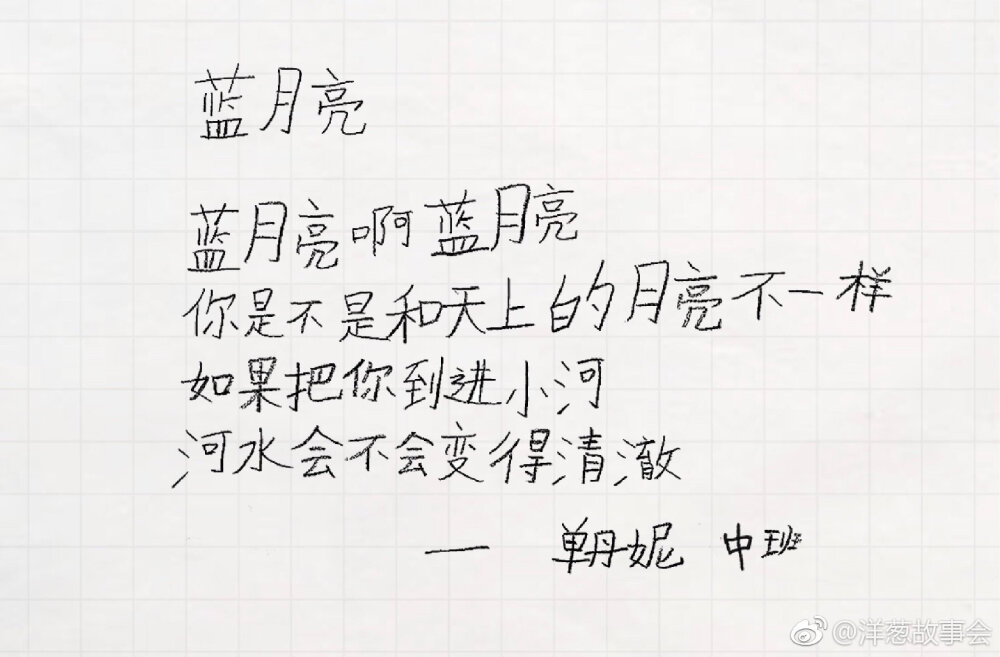 蓝月亮
蓝月亮啊蓝月亮
你是不是和天上的月亮不一样
如果把你到进小河
河水会不会变得清澈
— 单丹妮 中班
@洋葱故事会